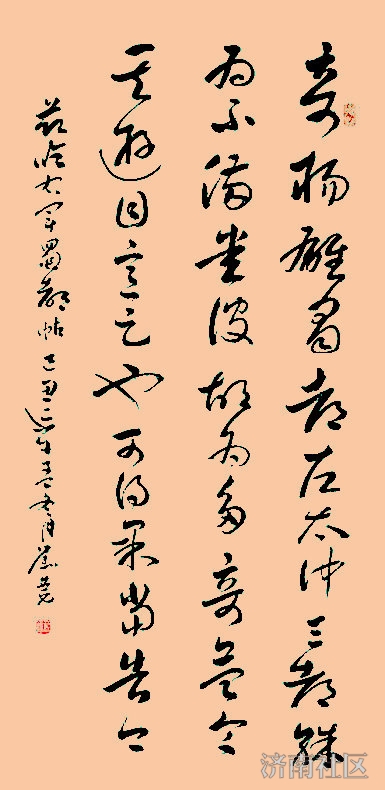 奇楊雄蜀都左太沖三都殊
為不備悉彼故為多奇益令
其遊目意足也可得果當告卿
臨右軍蜀都帖己丑
济南社区